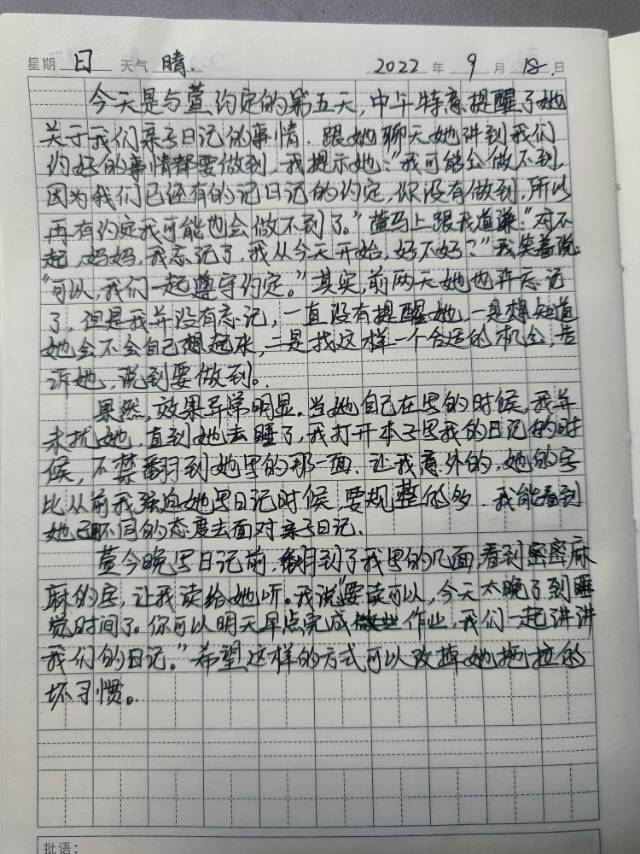 星期 日 天气 晴. 2022 年 9 月 18. 日
今天是与萱约定的第五天,中午特意提醒了她
关于我们亲子日记的事情.跟她聊天她讲到我们
约好的事情都要做到,我提示她:“我可能会做不到,
因为我们已还有的记日记的约定,你没有做到,所以
再有约定我可能也会做不到了。”萱马上跟我道谦:“对不
起,妈妈,我忘记了,我从今天开始,好不好?”我笑着说:
“可以,我们一起遵守约定。”其实,前两天她也许忘记
了,但是我并没有忘记,一直没有提醒她,一是想知道
她会不会自己想起来,二是找这样一个合适的机会,告
诉她,说到要做到。
果然,效果异常明显。当她自己在写的时候,我并
未扰她,直到她去睡了,我打开本子写我的日记的时
候,不禁翻到她写的那一面.让我意外的,她的字
比从前我强迫她写日记时候,要规整的多.我能看到
她已不同的态度去面对亲子日记.
萱今晚写日记前,翻到了我写的几面,看到密密麻
麻的字,让我读给她听。我说“要读可以,今天太晚了到睡
觉时间了。你可以明天早点完成作业,我们一起讲讲
我们的日记。”希望这样的方式可以改掉她拖拉的
坏习惯。
批语: